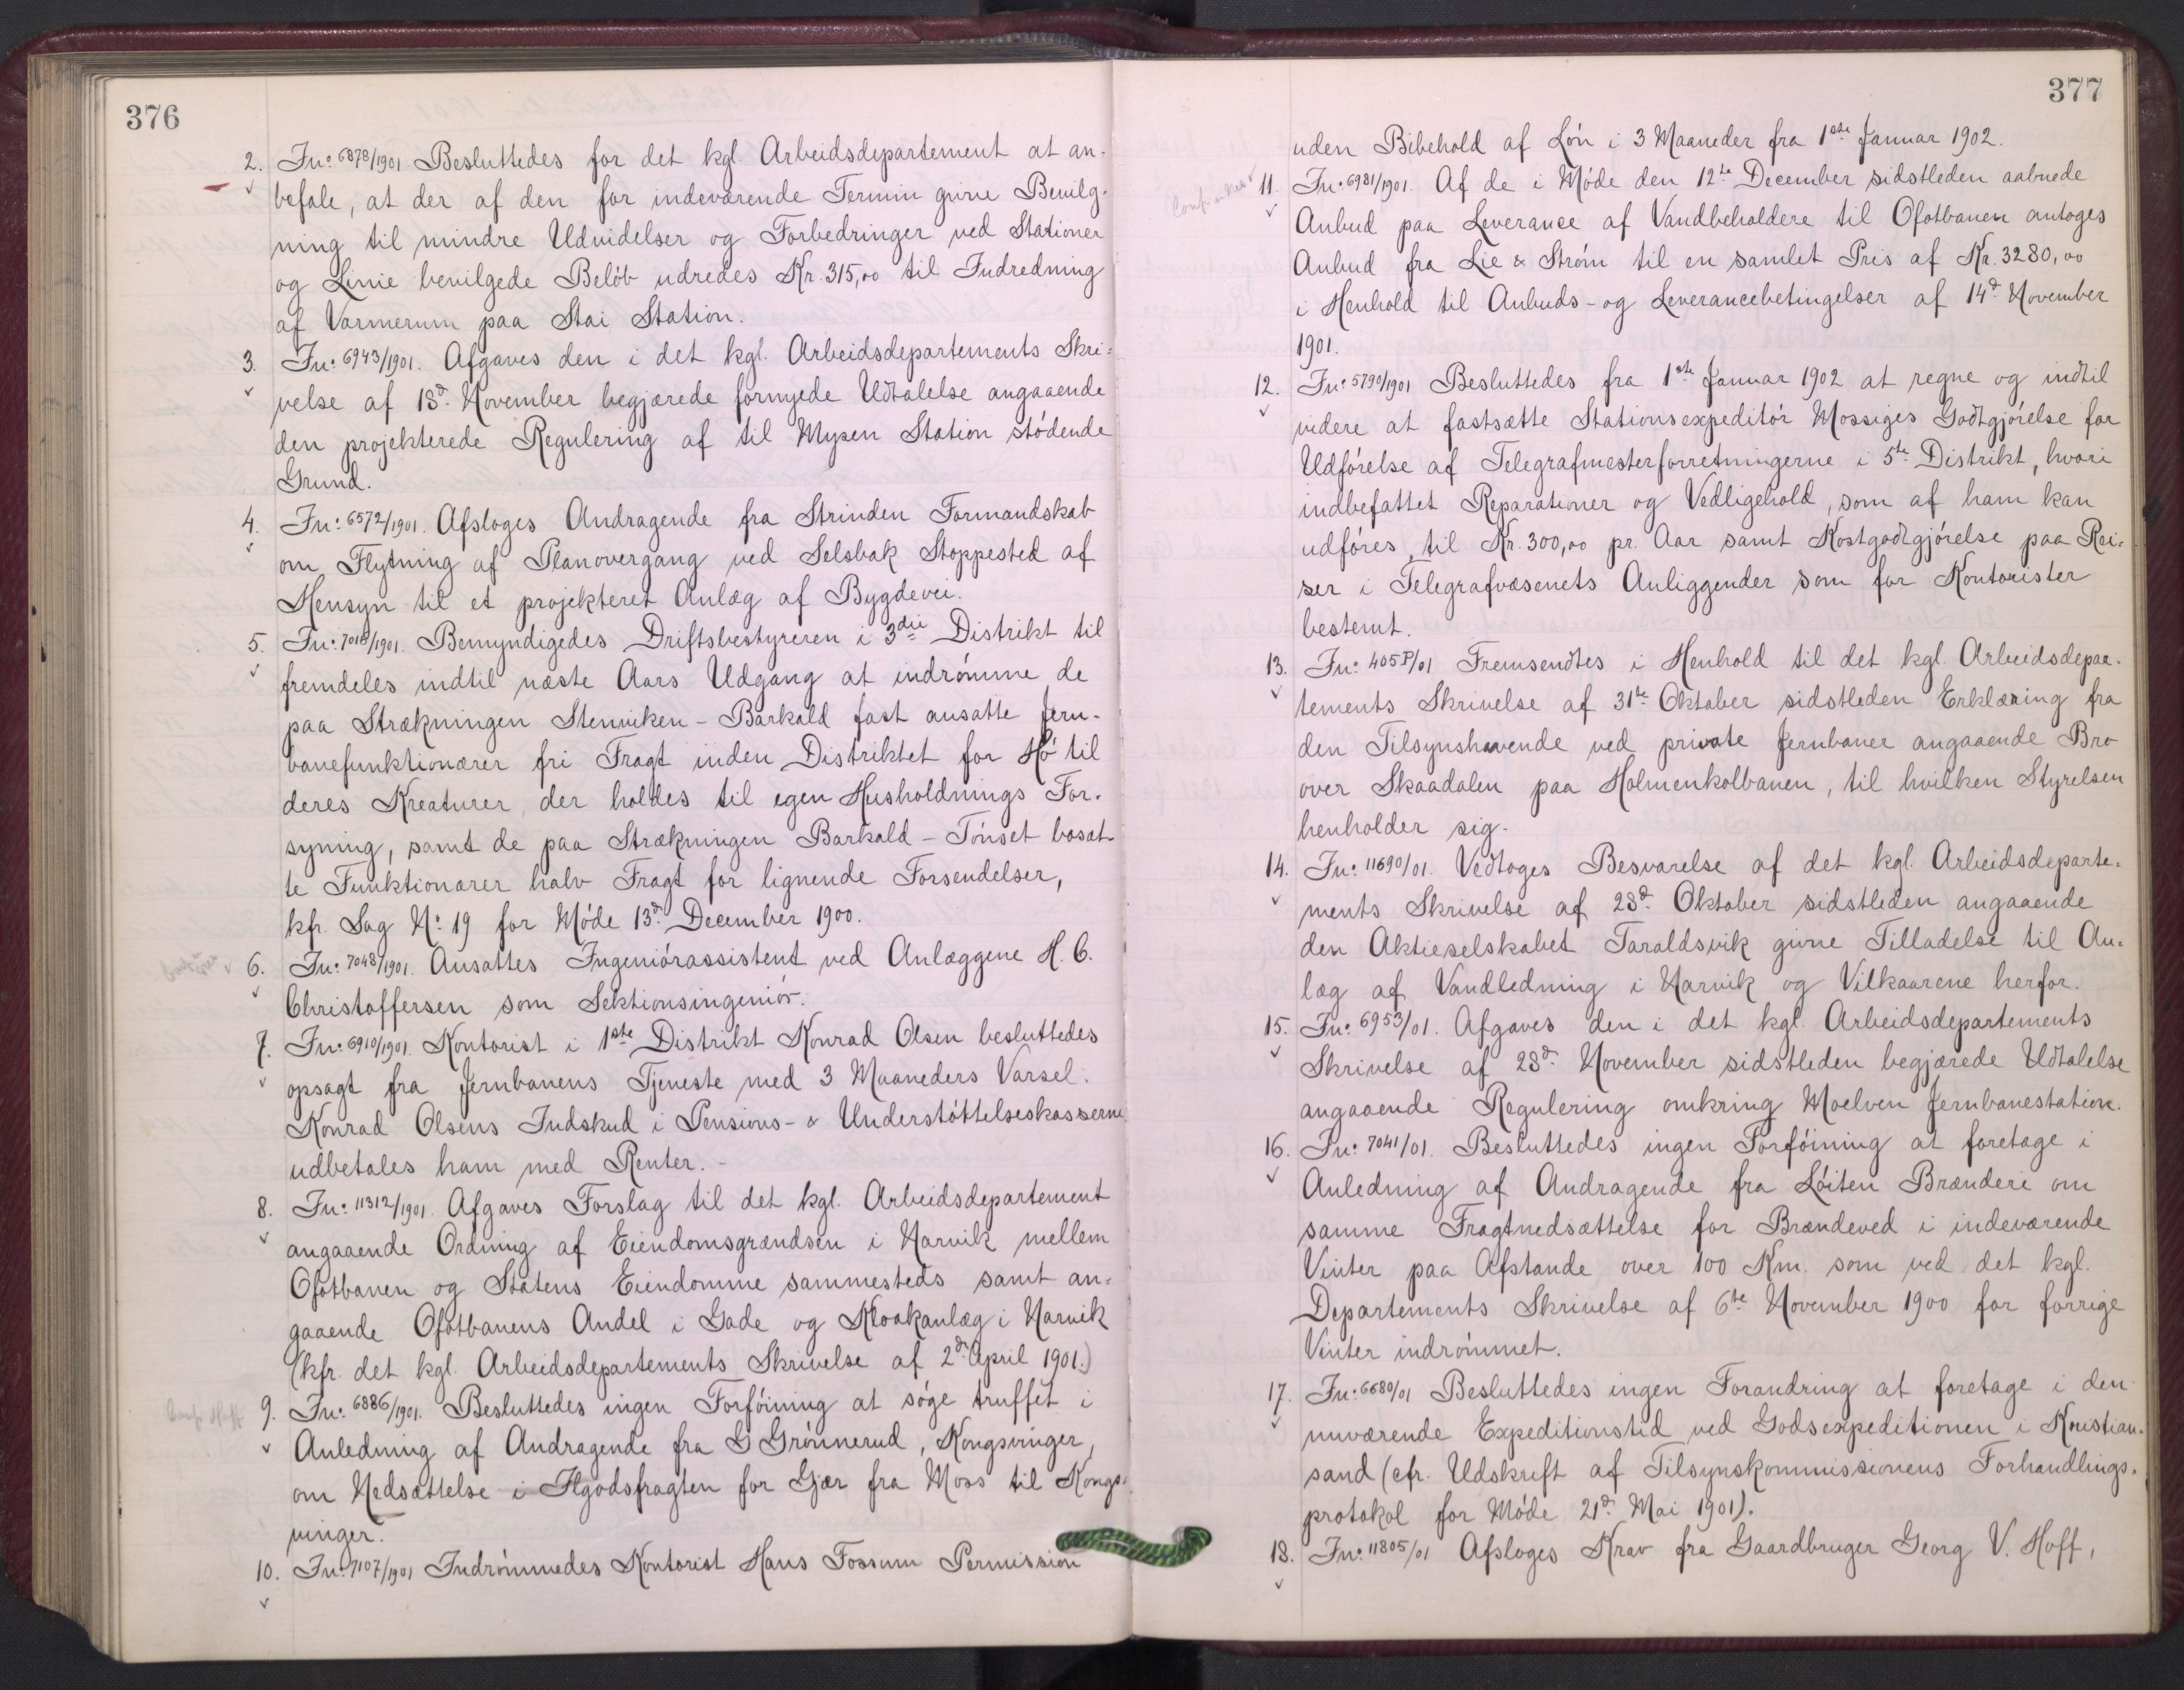 376
2. Jn: 6878/1901 Besluttedes for det kgl. Arbeidsdepartement at an-
befale, at der af den for indeværende Termin givne Bevilg-
ning til mindre Udvidelser og Forbedringer ved Stationer
og Linie bevilgede Beløb udredes Kr. 315,00 til Indredning
af Varmerum paa Stai Station.
3. Jn: 6943/1901. Afgaves den i det kgl. Arbeidsdepartements Skri-
velse af 18d November begjærede fornyede Udtalelse angaaende
den projekterede Regulering af til Mysen Station stødende
Grund.
4. Jn: 6572/1901. Afsloges Andragende fra Strinden Formandskab
om Flytning af Planovergang ved Selsbak Stoppested af
Hensyn til et projekteret Anlæg af Bygdevei.
5. Jn: 7018/1901. Bemyndigedes Driftsbestyreren i 3die Distrikt til
fremdeles indtil næste Aars Udgang at indrømme de
paa Strækningen Stenviken - Barkald fast ansatte Jern-
banefunktionærer fri Fragt inden Distriktet for Hø til
deres Kreaturer, der holdes til egen Husholdnings For-
syning, samt de paa Strækningen Barkald - Tønset bosat-
te Funktionærer halv Fragt for lignende Forsendelser,
kfr. Sag No: 19 for Møde 13d December 1900.
6. Jn: 7048/1901. Ansattes Ingeniørassistent ved Anlæggene H. C.
Christoffersen som Sektionsingeniør.
7. Jn: 6910/1901. Kontorist i 1ste Distrikt Konrad Olsen besluttedes
opsagt fra Jernbanens Tjeneste med 3 Maaneders Varsel.
Konrad Olsens Indskud i Pensions- & Understøttelseskasserne
udbetales ham med Renter. -
8. Jn: 11312/1901. Afgaves Forslag til det kgl. Arbeidsdepartement
angaaende Ordning af Eiendomsgrændsen i Narvik mellem
Ofotbanen og Statens Eiendomme sammesteds samt an-
gaaende Ofotbanens Andel i Gade og Kloakanlæg i Narvik
(kfr. det kgl. Arbeidsdepartements Skrivelse af 2d April 1901.)
Conf. Hoff 9. Jn: 6886/1901. Besluttedes ingen Forføining at søge truffet i
Anledning af Andragende fra G Grønnerud, Kongsvinger,
om Nedsættelse i Ilgodsfragten for Gjær fra Moss til Kongs-
vinger.
10. Jn: 7107/1901 Indrømmedes Kontorist Hans Fossum Permission
377
uden Bibehold af Løn i 3 Maaneder fra 1ste Januar 1902.
11. Jn: 6981/1901. Af de i Møde den 12te December sidstleden aabnede
Anbud paa Leverance af Vandbeholdere til Ofotbanen antoges
Anbud fra Lie & Strøm til en samlet Pris af Kr. 3280,00
i Henhold til Anbuds- og Leverancebetingelser af 14d November
1901.
12. Jn: 5790/1901 Besluttedes fra 1ste Januar 1902 at regne og indtil
videre at fastsætte Stationsexpeditør Mossiges Godtgjørelse for
Udførelse af Telegrafmesterforretningerne i 5te Distrikt, hvori
indbefattet Reparationer og Vedligehold, som af ham kan
udføres, til Kr. 300,00 pr. Aar samt Kostgodtgjørelse paa Rei-
ser i Telegrafvæsenets Anliggender som for Kontorister
bestemt.
13. Jn: 405P/01 Fremsendtes i Henhold til det kgl. Arbeidsdepar-
tements Skrivelse af 31te Oktober sidstleden Erklæring fra
den Tilsynshavende ved private Jernbaner angaaende Bro
over Skaadalen paa Holmenkolbanen, til hvilken Styrelsen
henholder sig.
14. Jn: 11690/01. Vedtoges Besvarelse af det kgl. Arbeidsdeparte-
ments Skrivelse af 28d Oktober sidstleden angaaende
den Aktieselskabet Taraldsvik givne Tilladelse til An-
læg af Vandledning i Narvik og Vilkaarene herfor.
15. Jn: 6953/01. Afgaves den i det kgl. Arbeidsdepartements
Skrivelse af 28d November sidstleden begjærede Udtalelse
angaaende Regulering omkring Moelven Jernbanestation.
16. Jn: 7041/01. Besluttedes ingen Forføining at foretage i
Anledning af Andragende fra Løiten Brænderi om
samme Fragtnedsættelse for Brændeved i indeværende
Vinter paa Afstande over 100 Km. som ved det kgl.
Departements Skrivelse af 6te November 1900 for forrige
Vinter indrømmet.
17. Jn: 6680/01 Besluttedes ingen Forandring at foretage i den
nuværende Expeditionstid ved Godsexpeditionen i Kristian-
sand (cfr. Udskrift af Tilsynskommissionens Forhandlings-
protokol for Møde 21d Mai 1901).
18. Jn: 11805/01 Afsloges Krav fra Gaardbruger Georg V. Hoff,